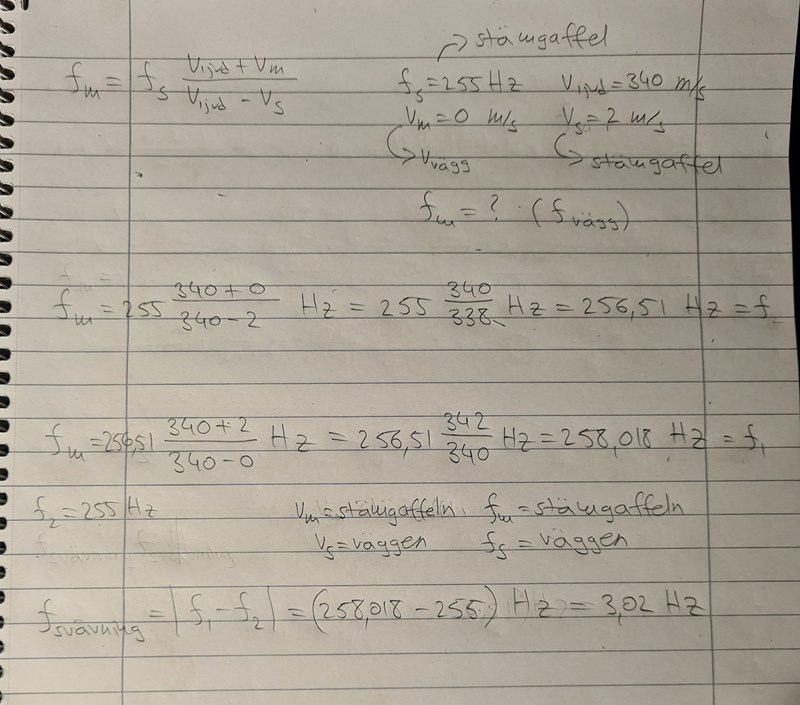 → stämgaffel
f_m = f_s (V_ljud + V_m)/(V_ljud - V_s)   f_s = 255 Hz   V_ljud = 340 m/s
V_m = 0 m/s   V_s = 2 m/s
→ V_vägg   → stämgaffel
f_m = ? (f_vägg)
f_m = 255 (340 + 0)/(340 - 2) Hz = 255 340/338 Hz = 256,51 Hz = f
f_m = 256,51 (340 + 2)/(340 - 0) Hz = 256,51 342/340 Hz = 258,018 Hz = f_1
f_2 = 255 Hz   V_m = stämgaffeln   f_m = stämgaffeln
V_s = väggen   f_s = väggen
f_svävning = |f_1 - f_2| = (258,018 - 255) Hz = 3,02 Hz